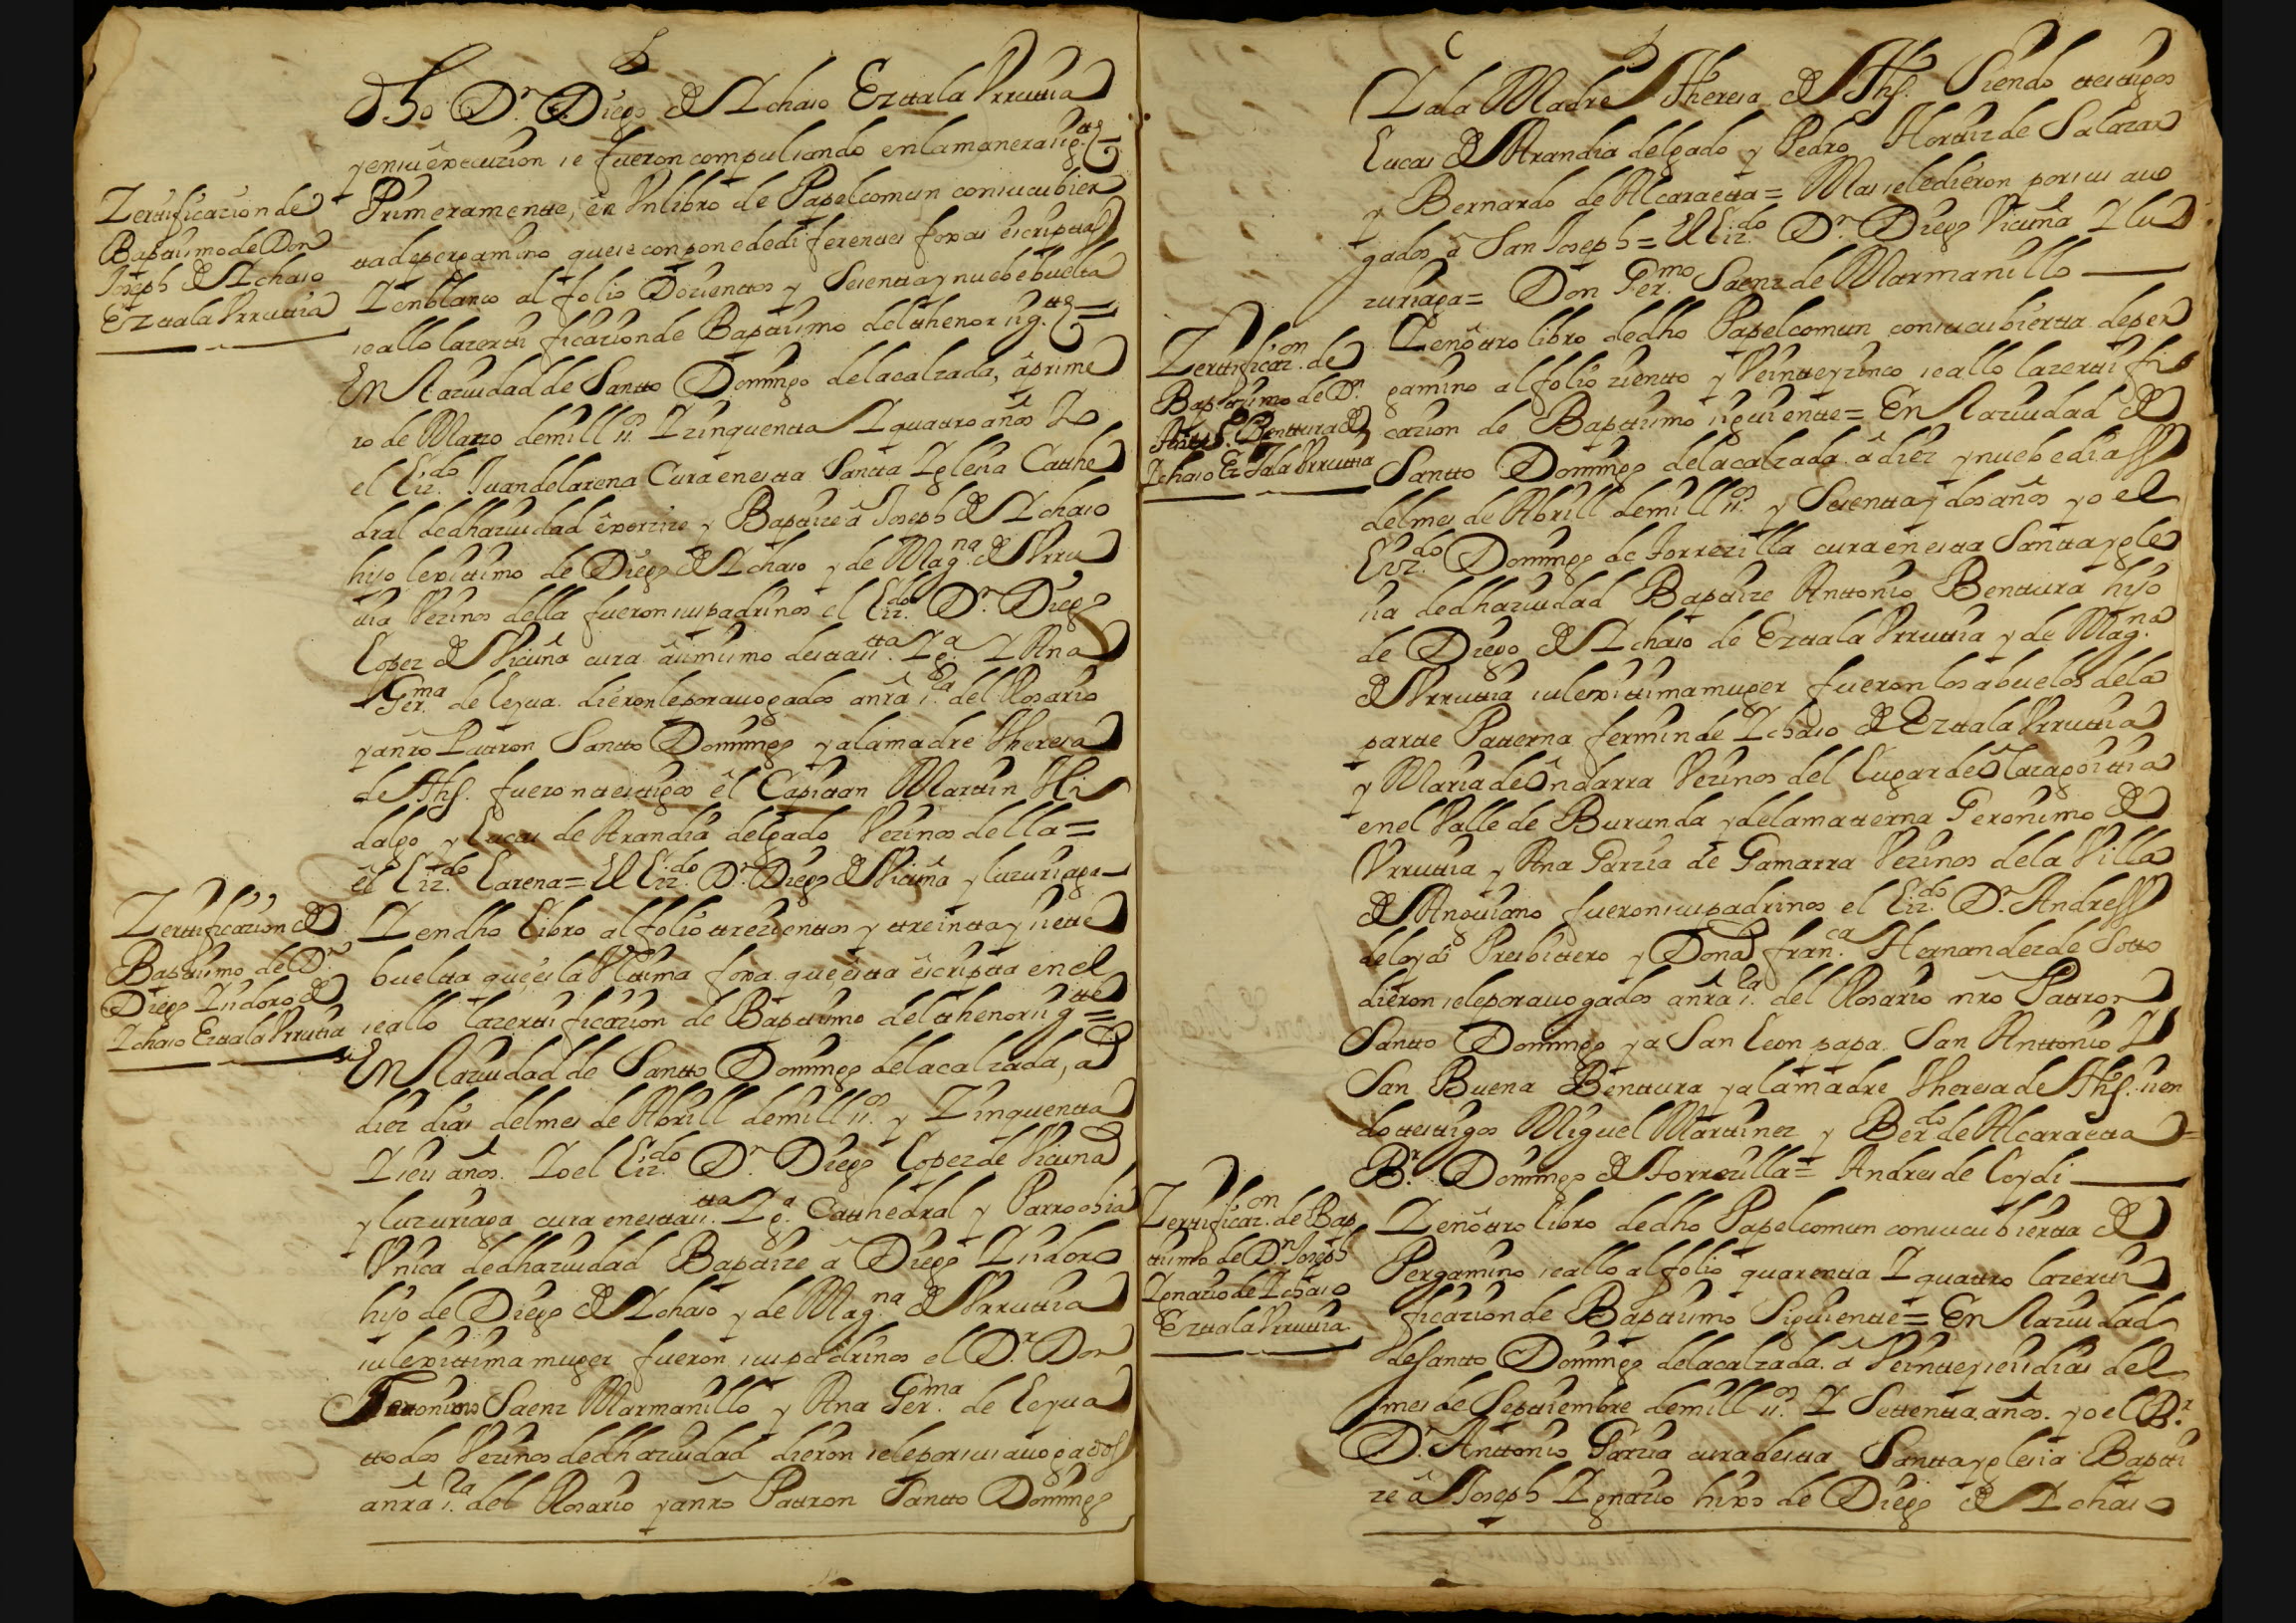 dho Dn. Diego de Ychaso Eztala Vrrutia
y en su êxecuzion se fueron compulsando en la manera sigte
Zertificazion de
Baptismo de Don
Joseph de Ychaso
Eztala Vrrutia
Primeramente, en Vn libro de Papel comun con su cubier
ta de pergamino que se conpone de diferentes foxas escriptas
Y en blanco al folio Dozientos y Sesenta y nuebe buelta
se allo la zertificazion de Baptismo del thenor sigte =
EN la ziudad de Santto Domingo de la calzada, â prime
ro de Marzo de mill ss. Y zinquenta Y quatro años Yo
el Lizdo. Juan de larena Cura en esta Santta Yglesia Cathe
dral de dha ziudad êxorzize y Baptize â Joseph de Ychaso
hijo lexittimo de Diego de Ychaso y de Magna. de Vrru
tia Vezinos della fueron sus padrinos el Lizdo. Dn. Diego
Lopez de Vicuña cura âsimismo desta stta. Yga. Y Ana
Germa. de Leyua. dieronle por auogados a nra. sra. del Rosario
y a nro Patron Santto Domingo y a la madre Theresa
de Jhs. fueron testigos êl Capitan Martin Hi
dalgo y Lucas de Arandia delgado Vezinos della =
êl Lizdo. Larena = El Lizdo. Dn. Diego de Vicuña y luzuriaga
Zertificazion de
Baptismo de Dn.
Diego Ysidoro de
Ychaso Eztala Vrrutia
Y en dho Libro al folio trezientos y treinta y siete
buelta que es la Vltima foxa que êsta êscripta en el
se allo la zertificazion de Baptismo del thenor sigte =
EN la ziudad de Santto Domingo de la calzada, a
diez dias del mes de Abrill de mill ss. y Zinquenta
Y seis años. Yo el Lizdo. Dn. Diego Lopez de Vicuña
y luzuriaga cura en esta stta. Yga. Cathedral y Parrochia
Vnica de dha ziudad Baptize â Diego Ysidoro
hijo de Diego de Ychaso y de Magna. de Vrrutia
su lexittima muger fueron sus padrinos el Dr. Don
Geronimo Saenz Marmanillo y Ana Germa. de Leyua
todos Vezinos de dha ziudad dieronsele por sus auogados
a nra. sra. del Rosario y a nro Patron Santto Domingo
Y a la Madre Theresa de Jhs. Siendo testigos
Lucas de Arandia delgado y Pedro Hortiz de Salazar
y Bernardo de Alcaraetta = Mas se le dieron por sus auo
gados â San Joseph = El Lizdo. Dn. Diego Vicuña Y lu
zuriaga = Don Germo. Saenz de Marmanillo
Zertificazon. de
Baptismo de Dn.
Bentura de
Ychaso Eztala Vrrutia
Y en ôttro libro de dho Papel comun con su cubierta de per
gamino al folio ziento y Veinte y zinco se allo la zertifi
cazion de Baptismo siguiente = En la ziudad de
Santto Domingo de la calzada â diez y nuebe dias
del mes de Abrill de mill ss. y Sesenta y dos años yo el
Lizdo. Domingo de Torrezilla cura en esta Santta ygle
sia de dha ziudad Baptize Anttonio Benttura hijo
de Diego de Ychaso de Eztala Vrrutia y de Magna.
de Vrrutia su lexittima muger fueron los abuelos de la
parte Paterna fermin de Ychaso de Eztala Vrrutia
y Maria de Ôndarra Vezinos del Lugar de Olazagoittia
en el Valle de Burunda y de la materna Geronimo de
Vrrutia y Ana Garzia de Gamarra Vezinos de la Villa
de Anguiano fueron sus padrinos el Lizdo. Dn. Andres
de loydi Presbittero y Dona franca. Hernandez de Sotto
dieronsele por auogados a nra. sra. del Rosario nro Patron
Santto Domingo y a San Leon papa. San Anttonio Y
San Buena Benttura y a la madre Theresa de Jhs. sien
do testigos Miguel Martinez y Berdo. de Alcaraetta =
Br. Domingo de Torrezilla = Andres de Loydi
Zertificazon. de Bap
tismo de Dn. Joseph
Ygnazio de Ychaso
Eztala Vrrutia.
Y en ôttro libro de dho Papel comun con su cubierta de
Pergamino se allo al folio quarenta Y quatro la zerti
ficazion de Baptismo Siguiente = En la ziudad
de Santto Domingo de la calzada. â Veinte y seis dias del
mes de Septtiembre de mill ss. Y Settenta años. yo el Br.
Dn. Anttonio Garzia cura desta Santta yglesia Bapti
ze â Joseph Ygnazio hixo de Diego de Ychaso